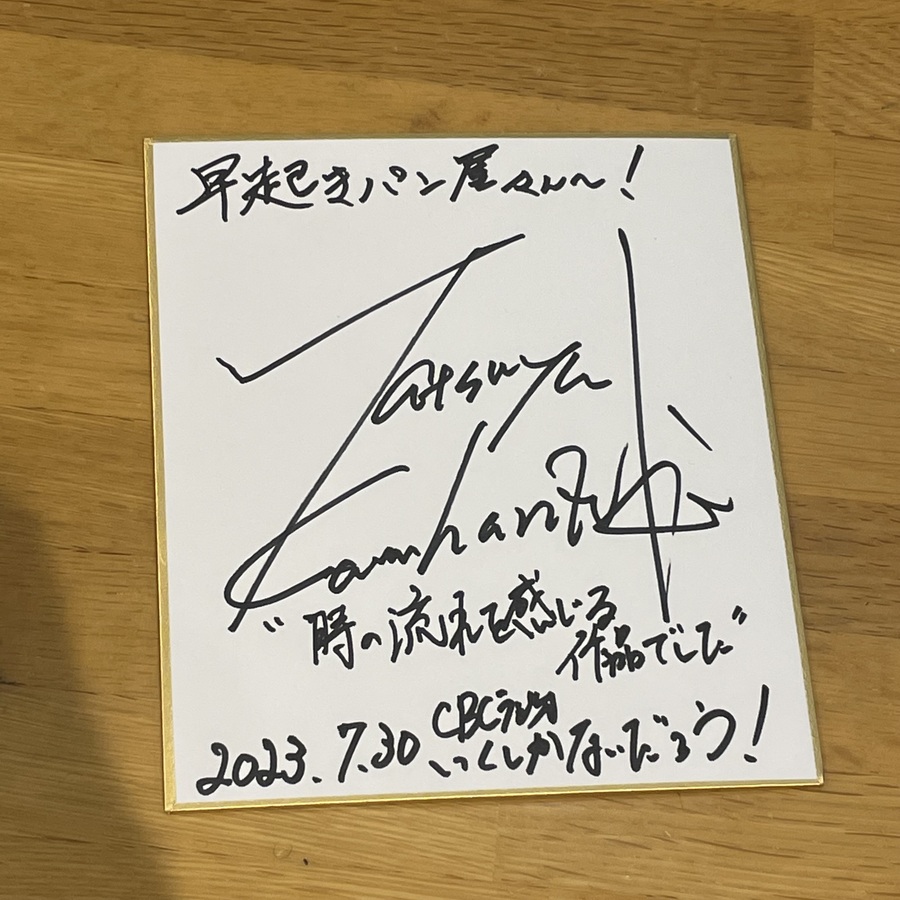 早起きパン屋さん〜！
Tatsuya
“時の流れを感じる
作品でした”
CBCラジオ
2023.7.30 いくしかないだろう！